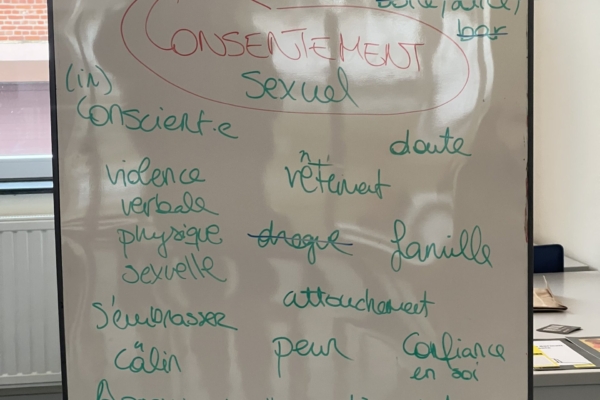 bar
CONSENTEMENT
sexuel
(in)
conscient.e
doute
violence
vêtement
verbale
physique
drogue
famille
sexuelle
attouchement
s'embrasser
câlin
peur
Confiance
en soi